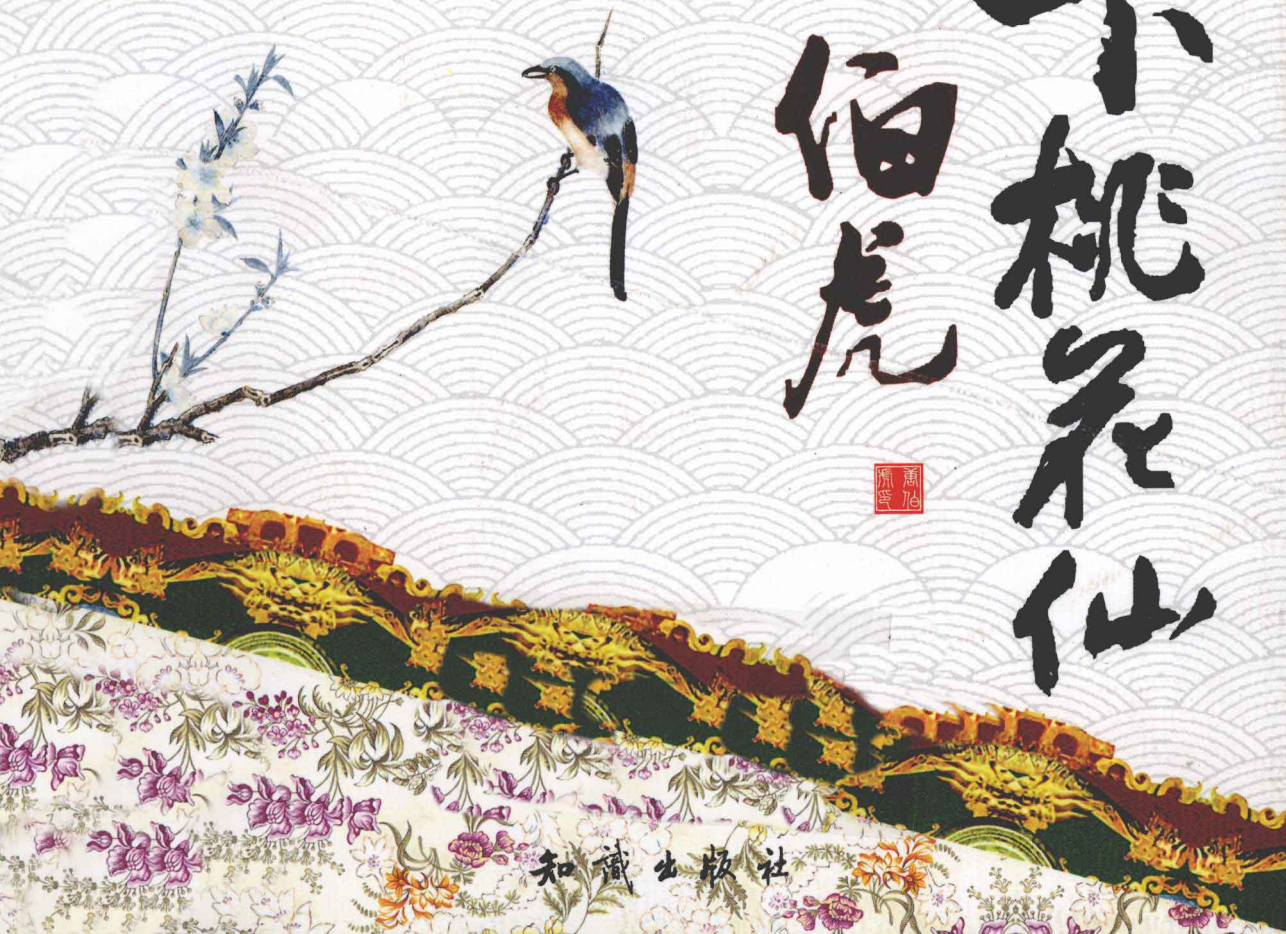 下桃花仙
伯虎
唐伯
虎印
知識出版社